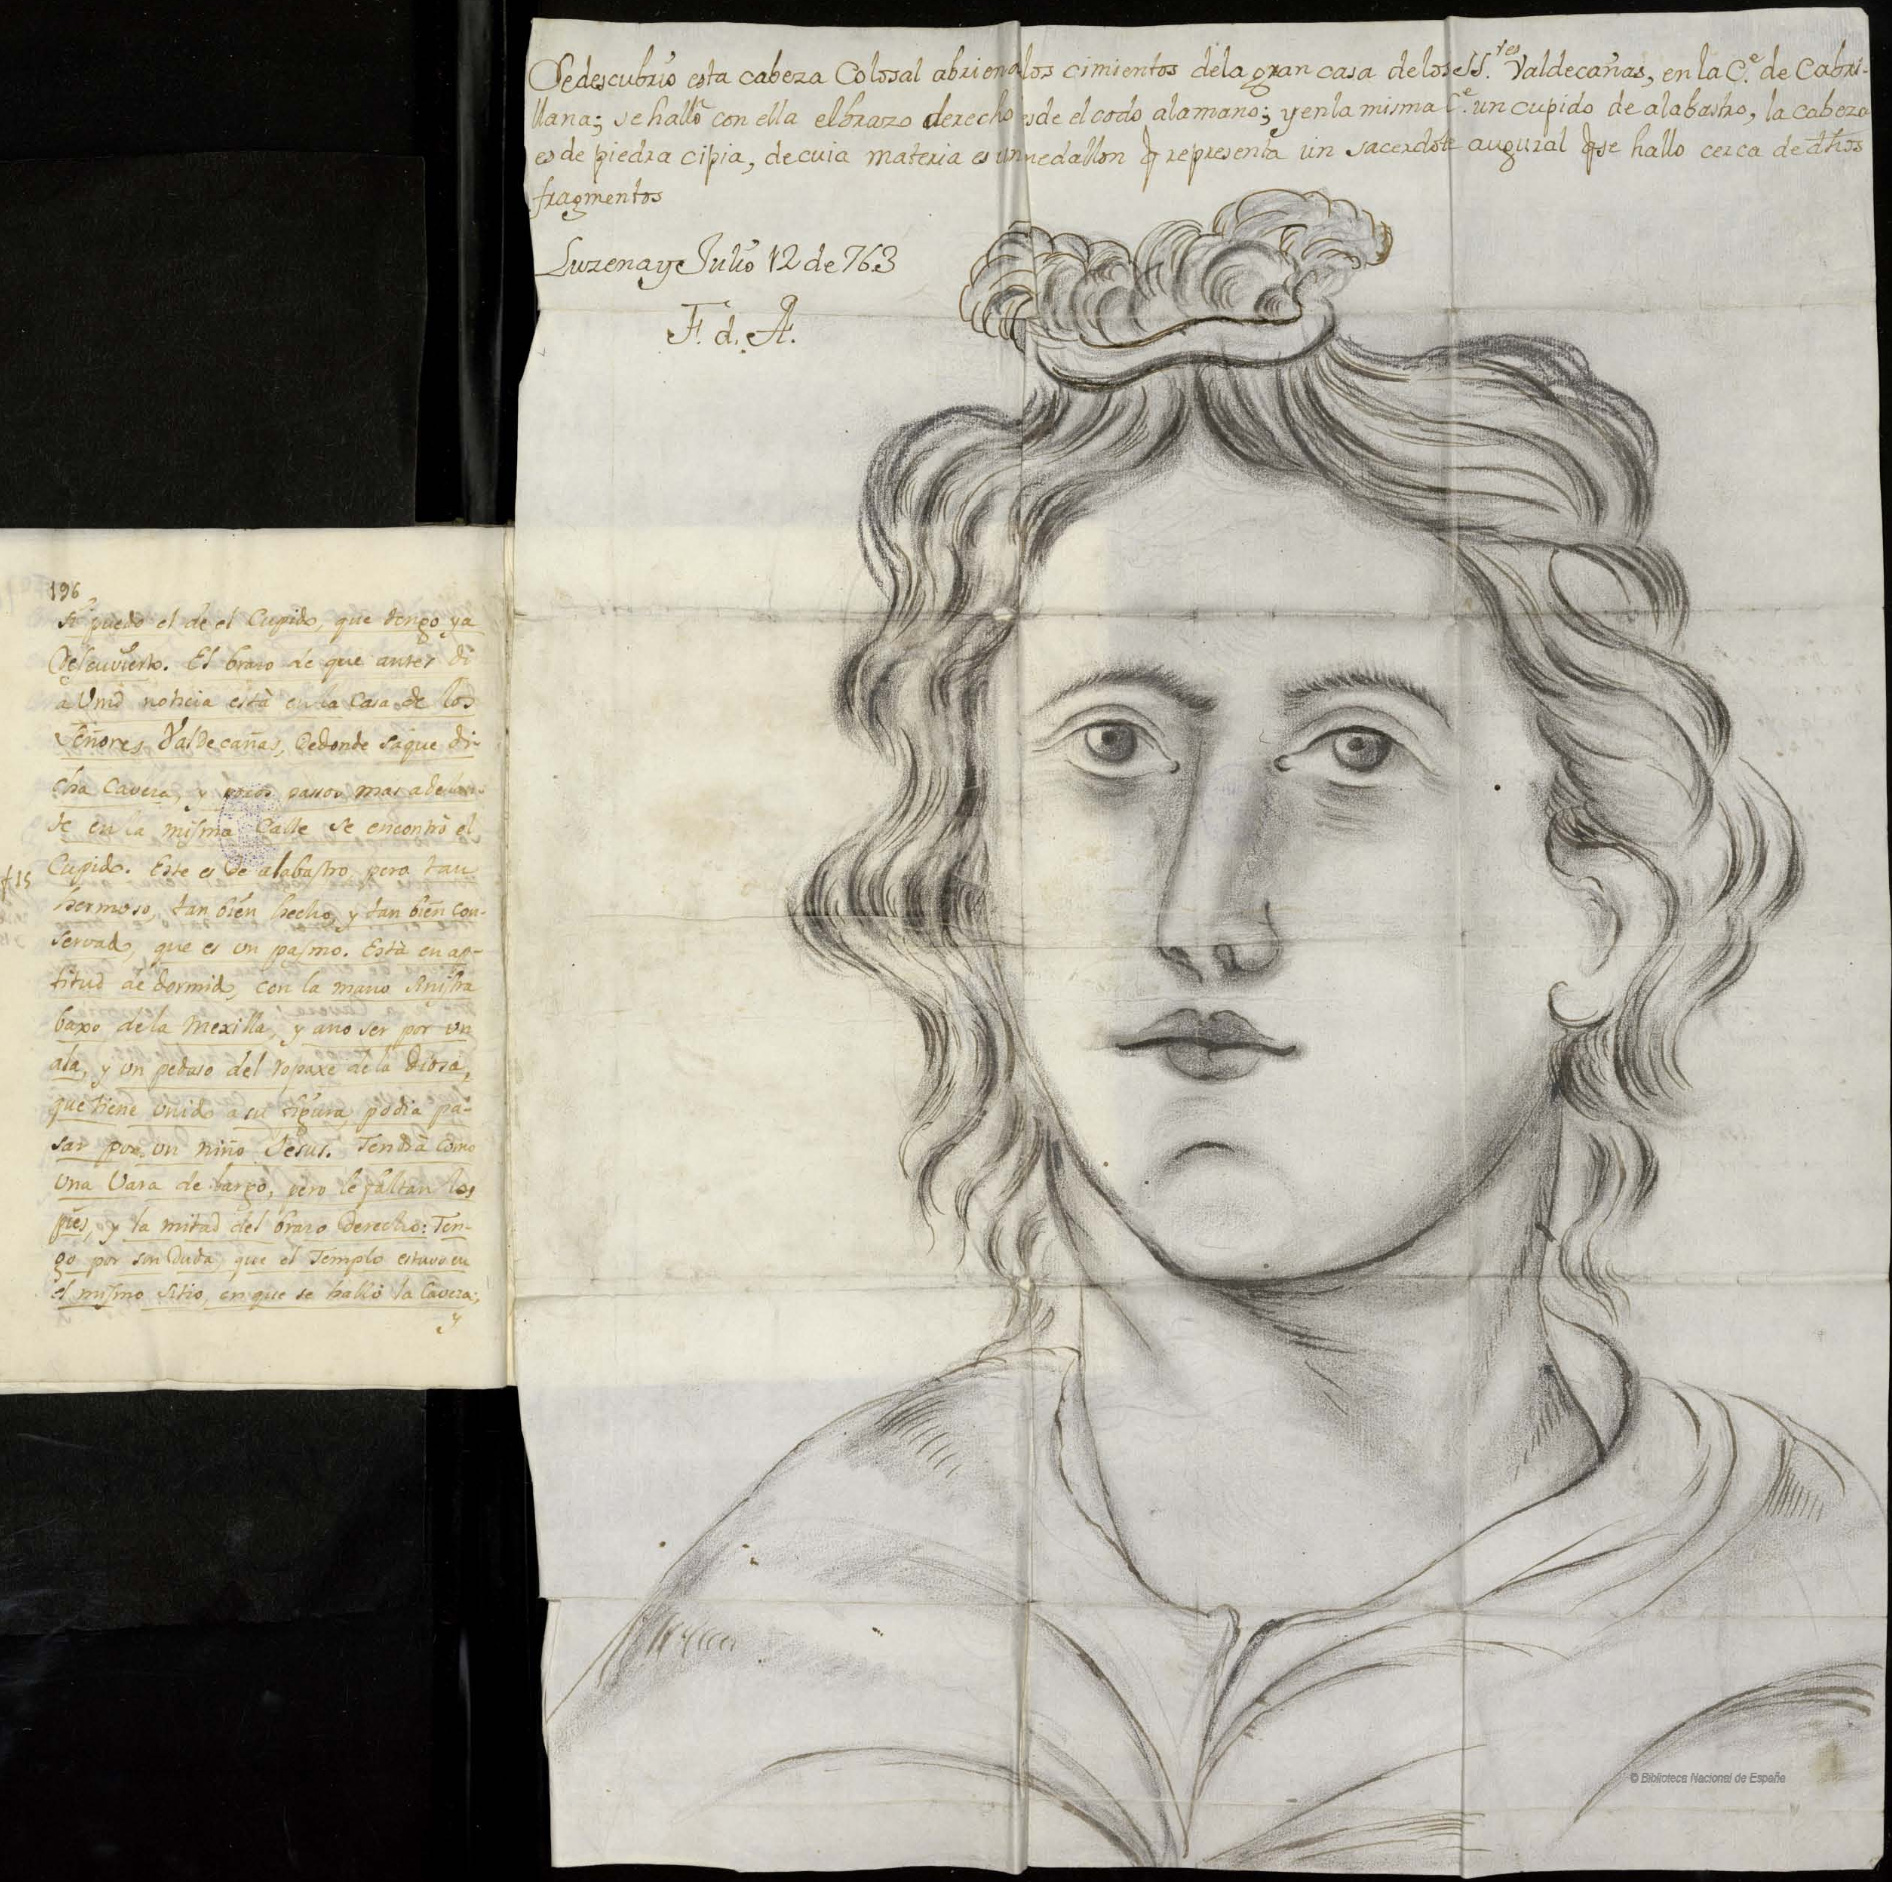 Sedescubrio esta cabeza Colosal abriendo los cimientos dela gran casa de los SS.res Valdecañas, en la C.e de Cabri-
llana; se halló con ella el brazo derecho desde el codo ala mano; y en la misma C.e un cupido de alabastro, la cabeza
es de piedra cipia, de cuia materia es un medallon q representa un sacerdote augural q se hallo cerca de dhos
fragmentos
Luzena y Julio 12 de 763
F. d. A.
196
si puedo el de el Cupido, que tengo ya
Descuvierto. El brazo de que antes di
a Vmd noticia està en la Casa de los
Señores Valdecañas, de donde saque di-
cha Caveza, y pocos passos mas adelan-
te en la misma Calle se encontrò el
Cupido. Este es de alabastro, pero tan
hermoso, tan bien hecho, y tan bien con-
servado, que es un pasmo. Està en ap-
titud de dormido, con la mano sinistra
baxo de la Mexilla, y a no ser por un
ala, y un pedaso del ropaxe de la Diosa,
que tiene unido a su figura, podia pa-
sar por un niño Jesus. Tendrà como
una Vara de largo, pero le faltan los
pies, y la mitad del brazo derecho: Ten-
go por sin duda, que el Templo estuvo en
el mismo sitio, en que se hallò la Caveza;
y
f 15
© Biblioteca Nacional de España